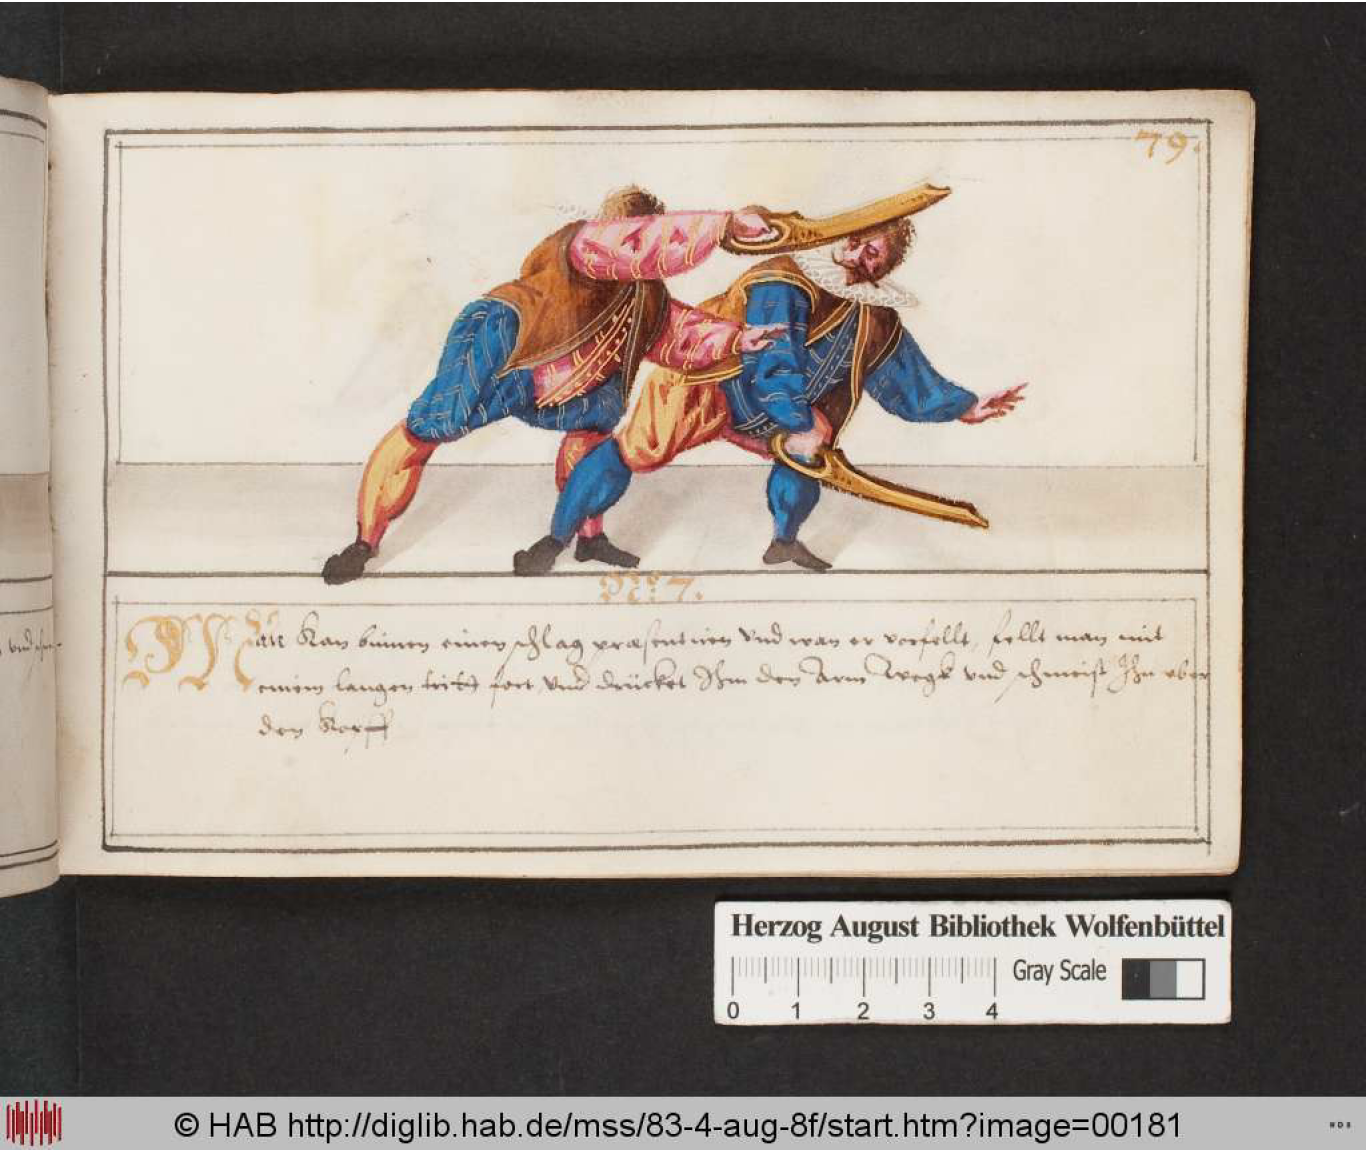 79.
No 7.
Man Kan binnen einen schlag præsentiren Vnd wan er verfellt, fellt man mit
einem langen tritt fort, Vnd drücket Ihm den Arm Wegk vnd schmeist Ihn vber
den Kopff
vnd
Herzog August Bibliothek Wolfenbüttel
Gray Scale
0 1 2 3 4
© HAB http://diglib.hab.de/mss/83-4-aug-8f/start.htm?image=00181